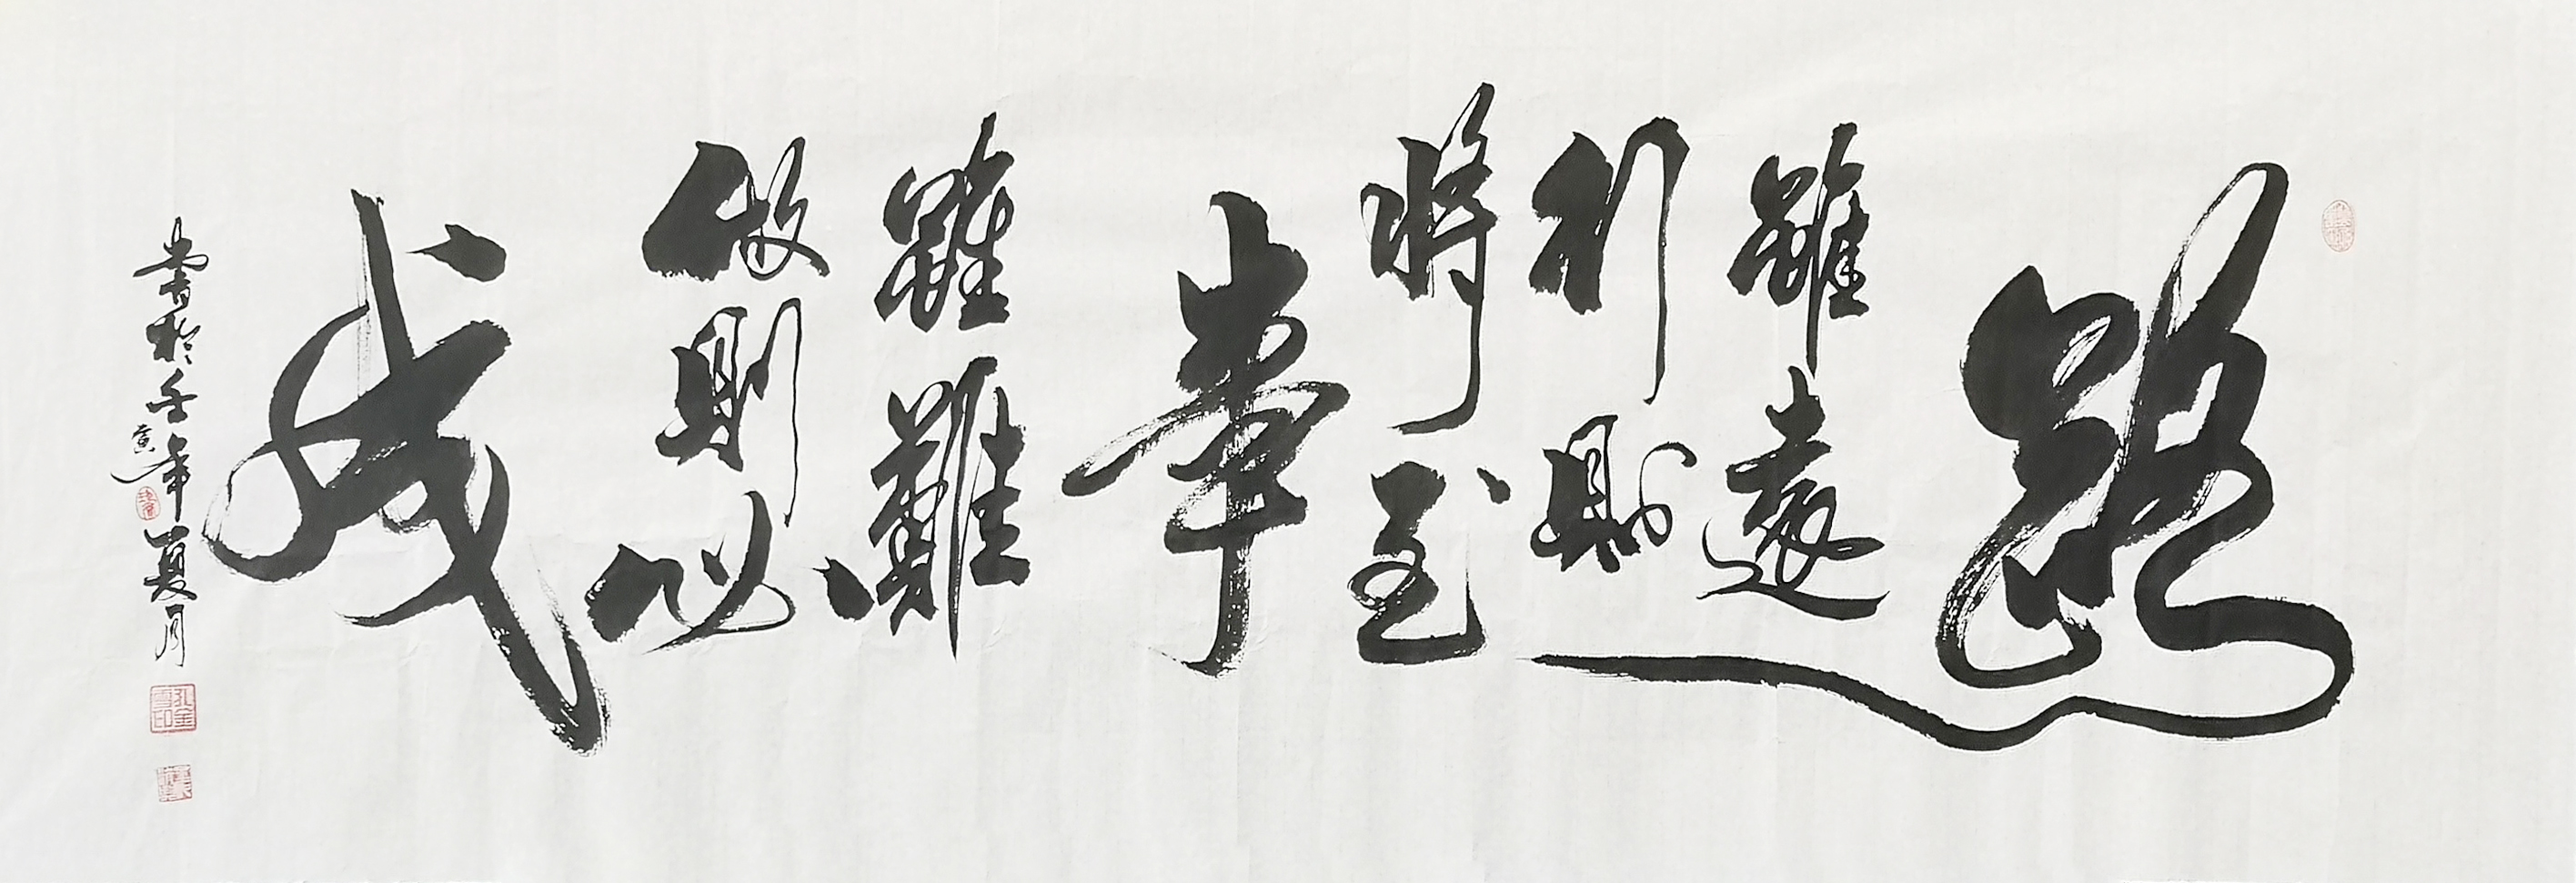 路
雖遠
行則
將至
事
雖難
做則必
成
書於壬寅年夏月